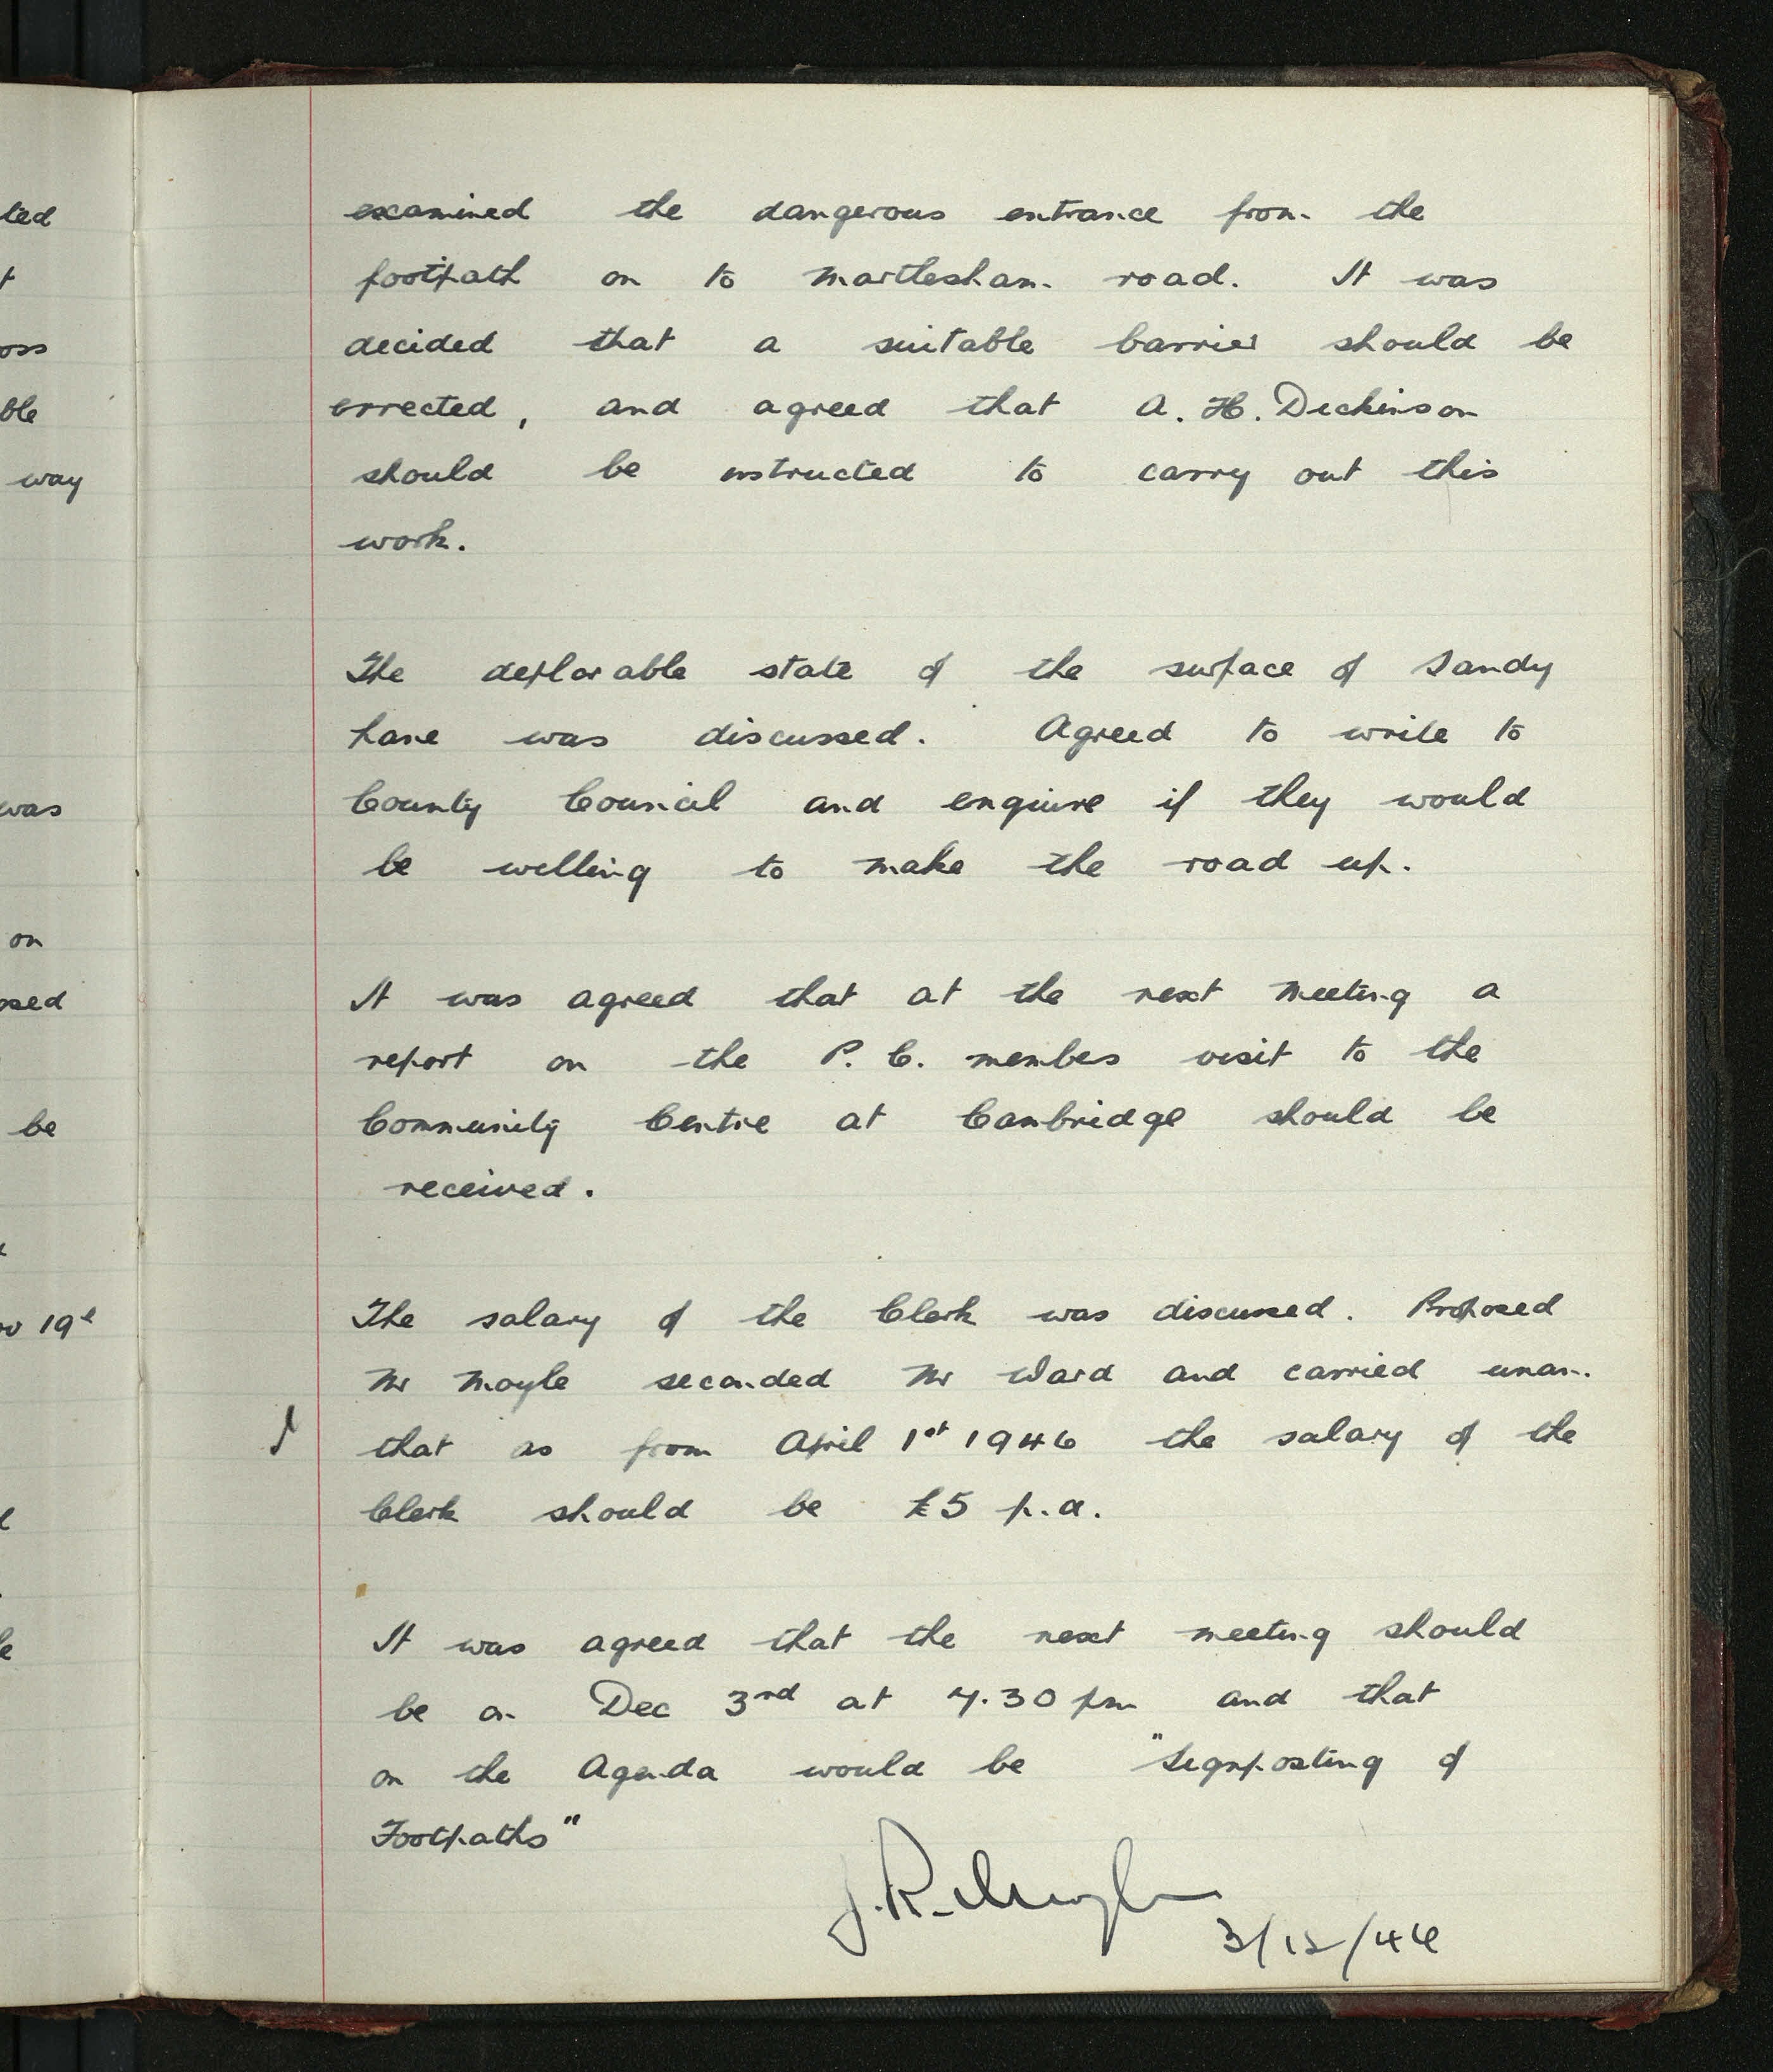 ted
oss
ble
way
was
on
osed
be
19th
examined the dangerous entrance from the
footpath on to Martlesham road. It was
decided that a suitable barrier should be
errected, and agreed that A. H. Dickinson
should be instructed to carry out this
work.
The deplorable state of the surface of Sandy
Lane was discussed. Agreed to write to
County Council and enquire if they would
be willing to make the road up.
It was agreed that at the next meeting a
report on the P. C. members visit to the
Community Centre at Cambridge should be
received.
The salary of the Clerk was discussed. Proposed
Mr Moyle seconded Mr Ward and carried unan.
that as from April 1st 1946 the salary of the
Clerk should be £5 p.a.
It was agreed that the next meeting should
be on Dec 3rd at 7.30 pm and that
on the Agenda would be "Signposting of
Footpaths"
J. R. Moyle
3/12/46